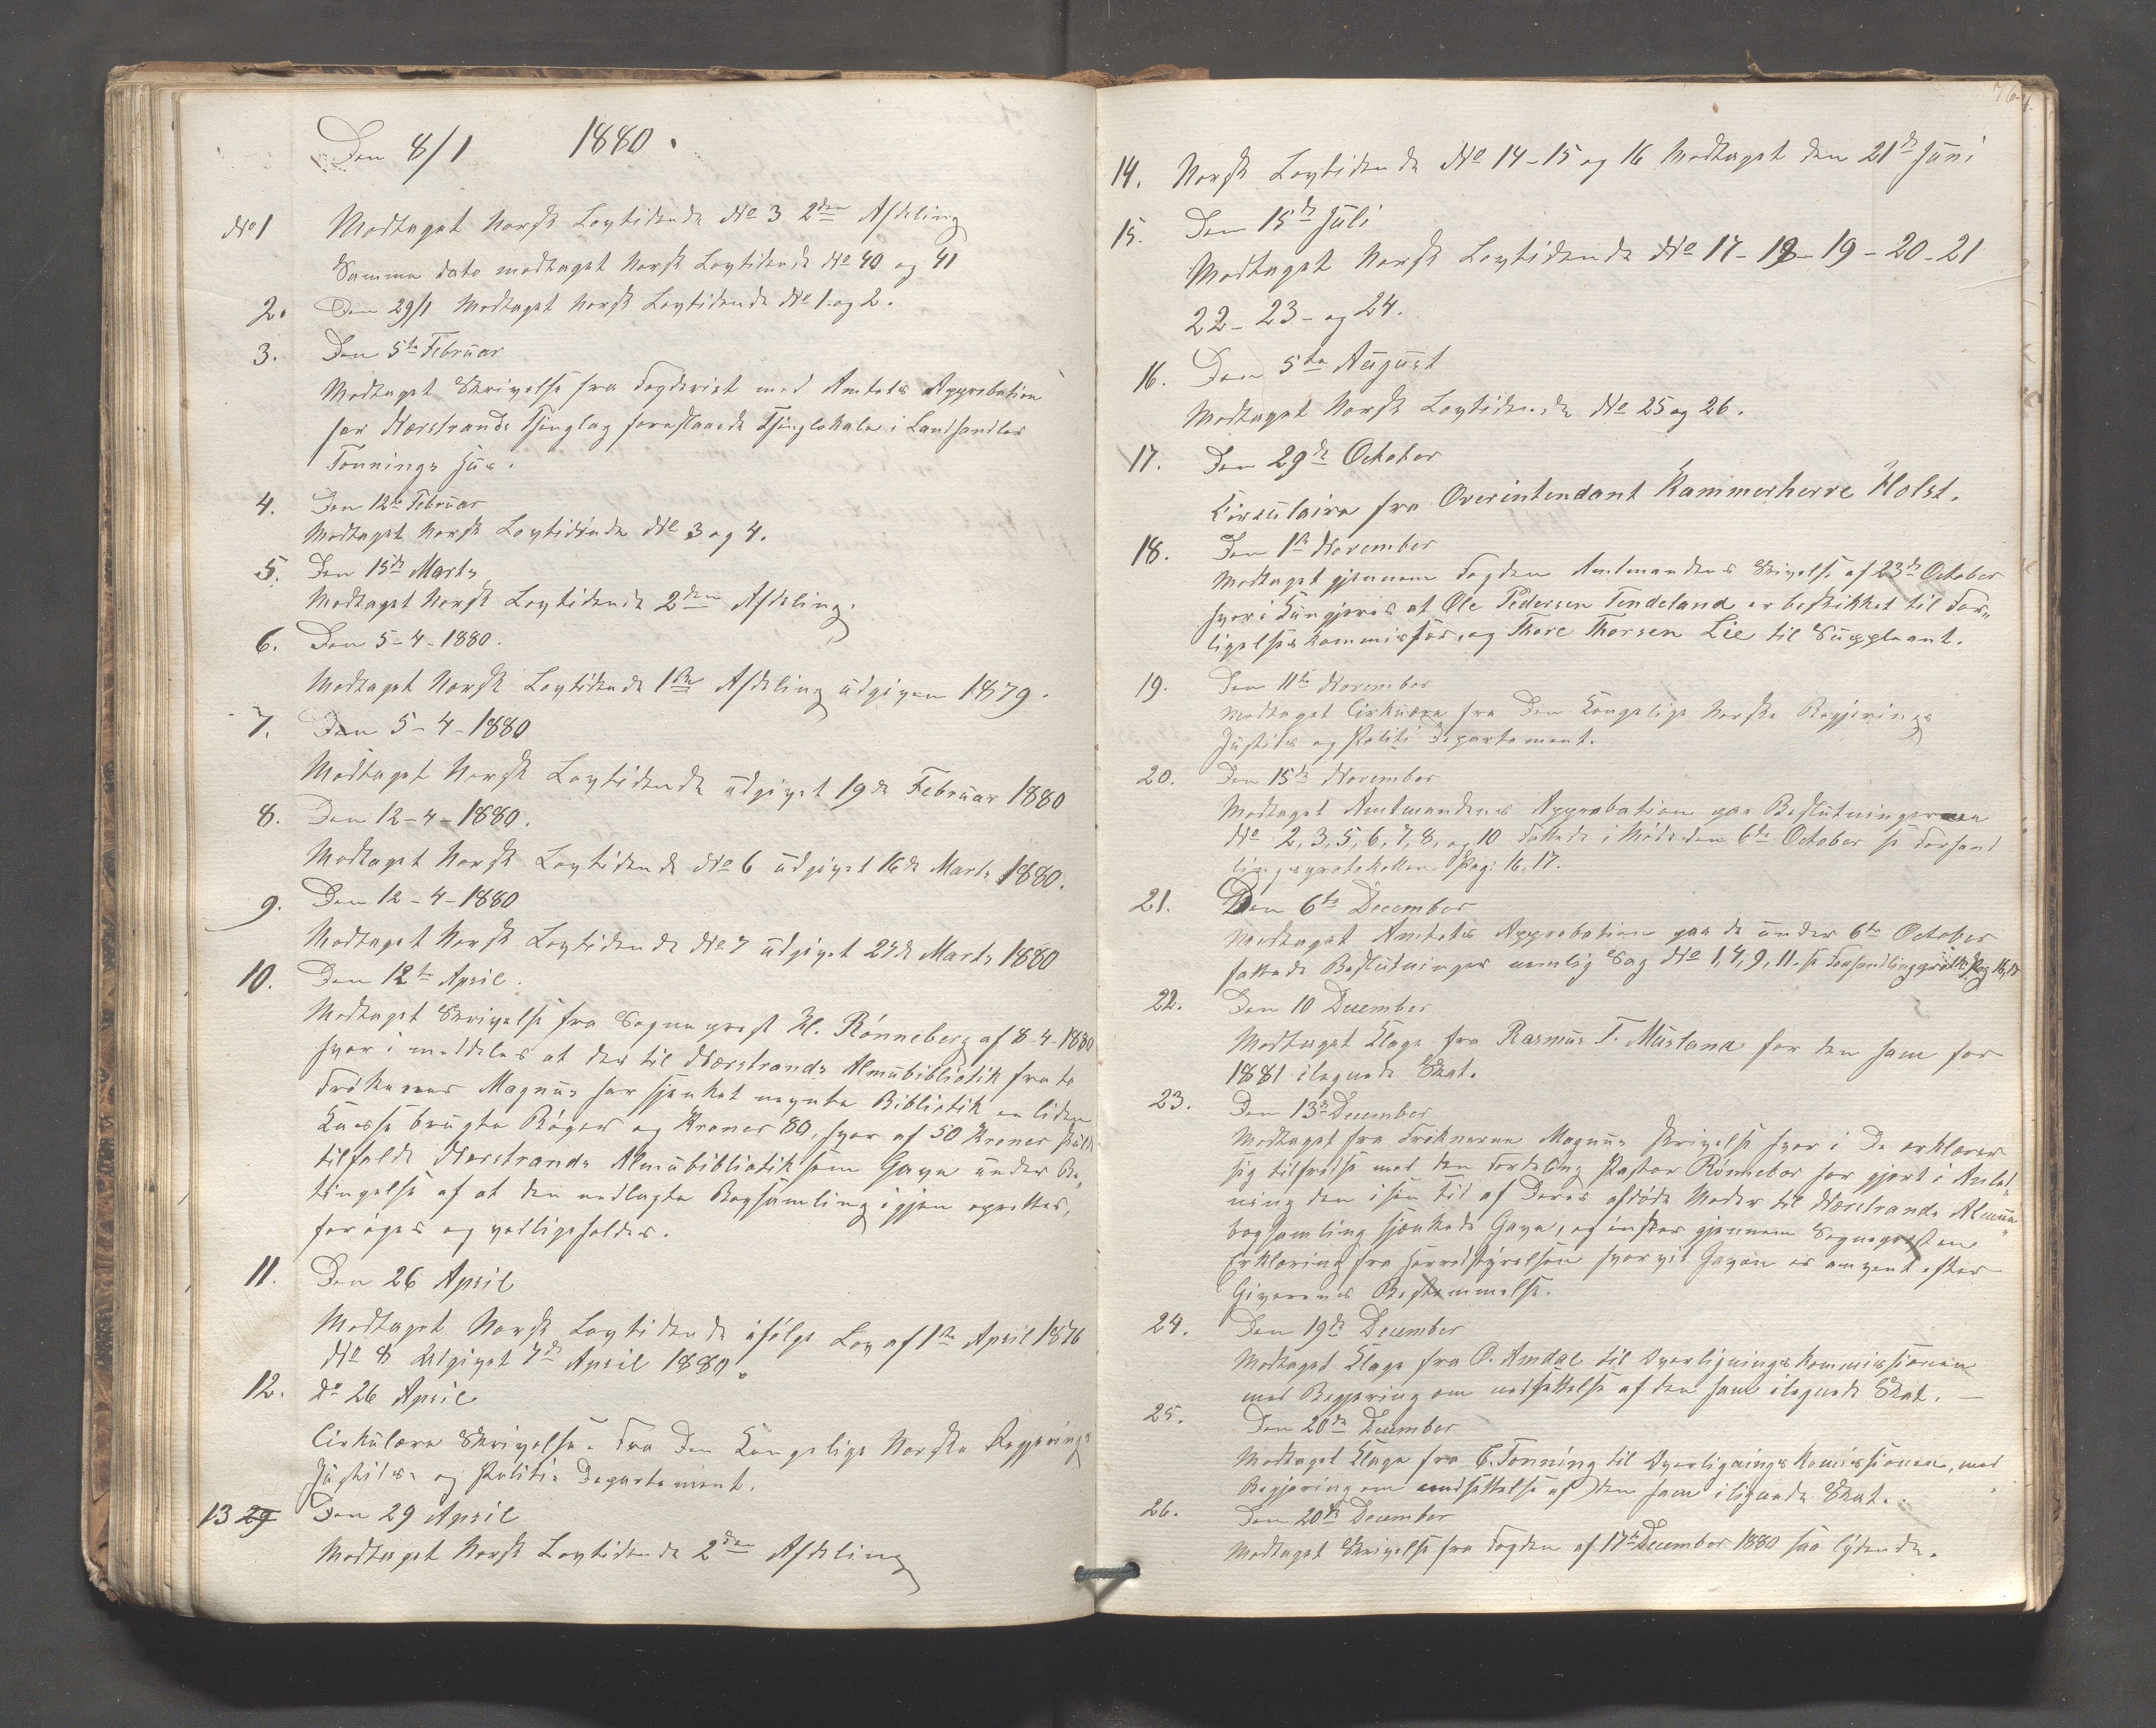 Den 8/1 1880.
No 1 Modtaget Norsk Lovtidende No 3 2den Afdeling
Samme dato modtaget Norsk Lovtidende No 40 og 41
2. Den 29/1 Modtaget Norsk Lovtidende No 1 og 2.
3. Den 5te Februar
Modtaget Skrivelse fra Fogderiet med Amtets Approbation
for Nærstrands Thinglag foreslaaede Thinglokale i Landhandler
Tonnings Hus.
4. Den 12te Februar
Modtaget Norsk Lovtidende No 3 og 4.
5. Den 15de Marts
Modtaget Norsk Lovtidende 2den Afdeling.
6. Den 5-4-1880.
Modtaget Norsk Lovtidende 1ste Afdeling udgiven 1879.
7. Den 5-4-1880
Modtaget Norsk Lovtidende udgivet 19de Februar 1880
8. Den 12-4-1880.
Modtaget Norsk Lovtidende No 6 udgivet 16de Marts 1880.
9. Den 12-4-1880
Modtaget Norsk Lovtidende No 7 udgivet 24de Marts 1880
10. Den 12te April.
Modtaget Skrivelse fra Sogneprest Kl. Rönneberg af 8-4-1880
hvor i meddeles at der til Nærstrands Almubibliotik fra to
Frökener Magnus har skjenket nevnte Bibliotik en liden
Kasse brugte Böger og Kroner 80, hvor af 50 Kroner skulde
tilfalde Nerstrands Almubibliotik som Gave under Be„
tingelse af at den nedlagte Bogsamling igjen oprettes,
foröges og vedligeholdes.
11. Den 26 April
Modtaget Norsk Lovtidende ifölge Lov af 1ste April 1876
No 8 Udgivet 7de April 1880.
12. do 26 April
Cirkulære Skrivelse. Fra Den Kongelige Norske Regjerings
Justits- og Politie Departement.
13 29 Den 29 April
Modtaget Norsk Lovtidende 2den Afdeling
14. Norsk Lovtidende No 14-15 og 16 Modtaget den 21de Juni
15. Den 15de Juli
Modtaget Norsk Lovtidende No 17-18-19-20-21
22-23-og 24.
16. Den 5te August
Modtaget Norsk Lovtidende No 25 og 26.
17. Den 29de October
Cirkulaire fra Overintendant Kammerherre Holst.
18. Den 1ste November
Modtaget gjennem Fogden Amtmandens Skivelse af 23de October
hvori Kungjøres at Ole Pedersen Tendeland er beskikket til For„
ligelseskommissær, og Thore Thorsen Lie til Suppleant.
19. Den 11te November
Modtaget Cirkuære fra Den Kongelige Norske Regjerings
Justits og Politi Departement.
20. Den 15de November
Modtaget Amtmandens Approbation paa Beslutningerne
No 2, 3, 5, 6, 7, 8, og 10 Fattede i Møde den 6te October se Forhand
lingsprotokollen Pag: 16, 17.
21. Den 6te December
Modtaget Amtets Approbation paa de under 6te October
fattede Beslutninger nemlig Sag No 1, 4, 9, 11. se Forhandlingsprotk. Pag 16, 17
22. Den 10 December
Modtaget Klage fra Rasmus T. Musland for den ham for
1881 ilegnede Skat.
23. Den 13de December
Modtaget fra Frøknerne Magnus Skrivelse hvor i De erklærer
sig tilfredse med den Fordeling Pastor Rönneber har gjort i Anled
ning den i sin Tid af Deres afdöde Moder til Nærstrands Almue
bogsamling skjænkede Gave, og önsker gjennem Sognepresten
Erklæring fra Herredstyrelsen hvorvit Gaven er anvent efter
Giverens Bestemmelse.
24. Den 19de December
Modtaget Klage fra O. Amdal til Overligningskommissionen
med Begjæring om nedsettelse af den ham ilegnede Skat.
25. Den 20de December
Modtaget Klage fra C. Tonning til Overligningskomissionen, med
Begjæring om nedsettelse af den ham ilignede Skat.
26. Den 20de December
Modtaget Skrivelse fra Fogden af 17de December 1880 saa lydende.